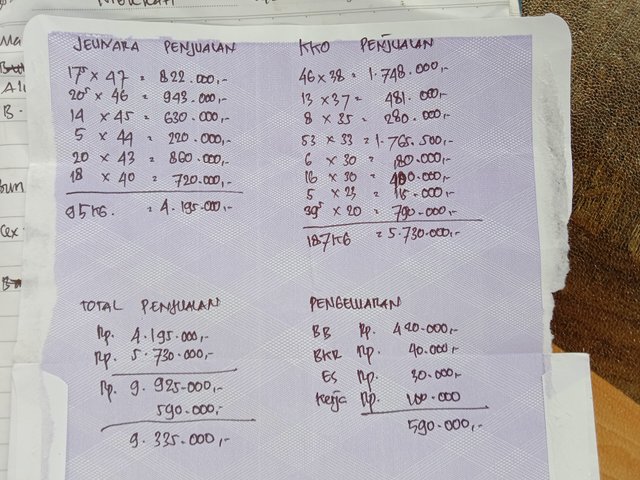 JEUNARA PENJUALAN
17⁵ x 47 = 822.000,-
20⁵ x 46 = 943.000,-
14 x 45 = 630.000,-
5 x 44 = 220.000,-
20 x 43 = 860.000,-
18 x 40 = 720.000,-
95 KG. = 4.195.000,-
KKO PENJUALAN
46 x 38 = 1.748.000,-
13 x 37 = 481.000,-
8 x 35 = 280.000,-
53 x 33 = 1.765.500,-
6 x 30 = 180.000,-
16 x 30 = 000,-
5 x 23 = 115.000,-
39⁵ x 20 = 790.000,-
187 KG = 5.730.000,-
TOTAL PENJUALAN
Rp. 4.195.000,-
Rp. 5.730.000,-
Rp. 9.925.000,-
590.000,-
9.335.000,-
PENGELUARAN
BB Rp. 420.000,-
BKR Rp. 40.000,-
ES Rp. 30.000,-
Kerja Rp. 100.000
590.000,-